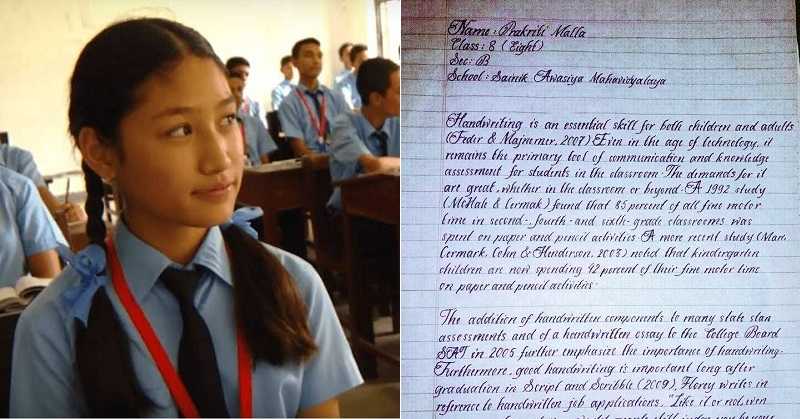 Name : Prakriti Malla
Class : 8 (Eight)
Sec : B
School : Sainik Awasiya Mahavidyalaya
Handwriting is an essential skill for both children and adults
(Feder & Majnemer, 2007) Even in the age of technology, it
remains the primary tool of communication and knowledge
assessment for students in the classroom. The demands for it
are great, whether in the classroom or beyond. A 1992 study
(McHale & Cermak) found that 85 percent of all fine motor
time in second-, fourth- and sixth- grade classrooms was
spent on paper and pencil activities. A more recent study (Marr,
Cermark, Cohn & Henderson, 2003) noted that kindergarten
children are now spending 42 percent of their fine motor time
on paper and pencil activities.
The addition of handwritten components to many state stan
assessments and of a handwritten essay to the College Board
SAT in 2005 further emphasize the importance of handwriting.
Furthermore, good handwriting is important long after
graduation in Script and Scribble (2009), Florey writes in
reference to handwritten job applications, "Like it or not, even